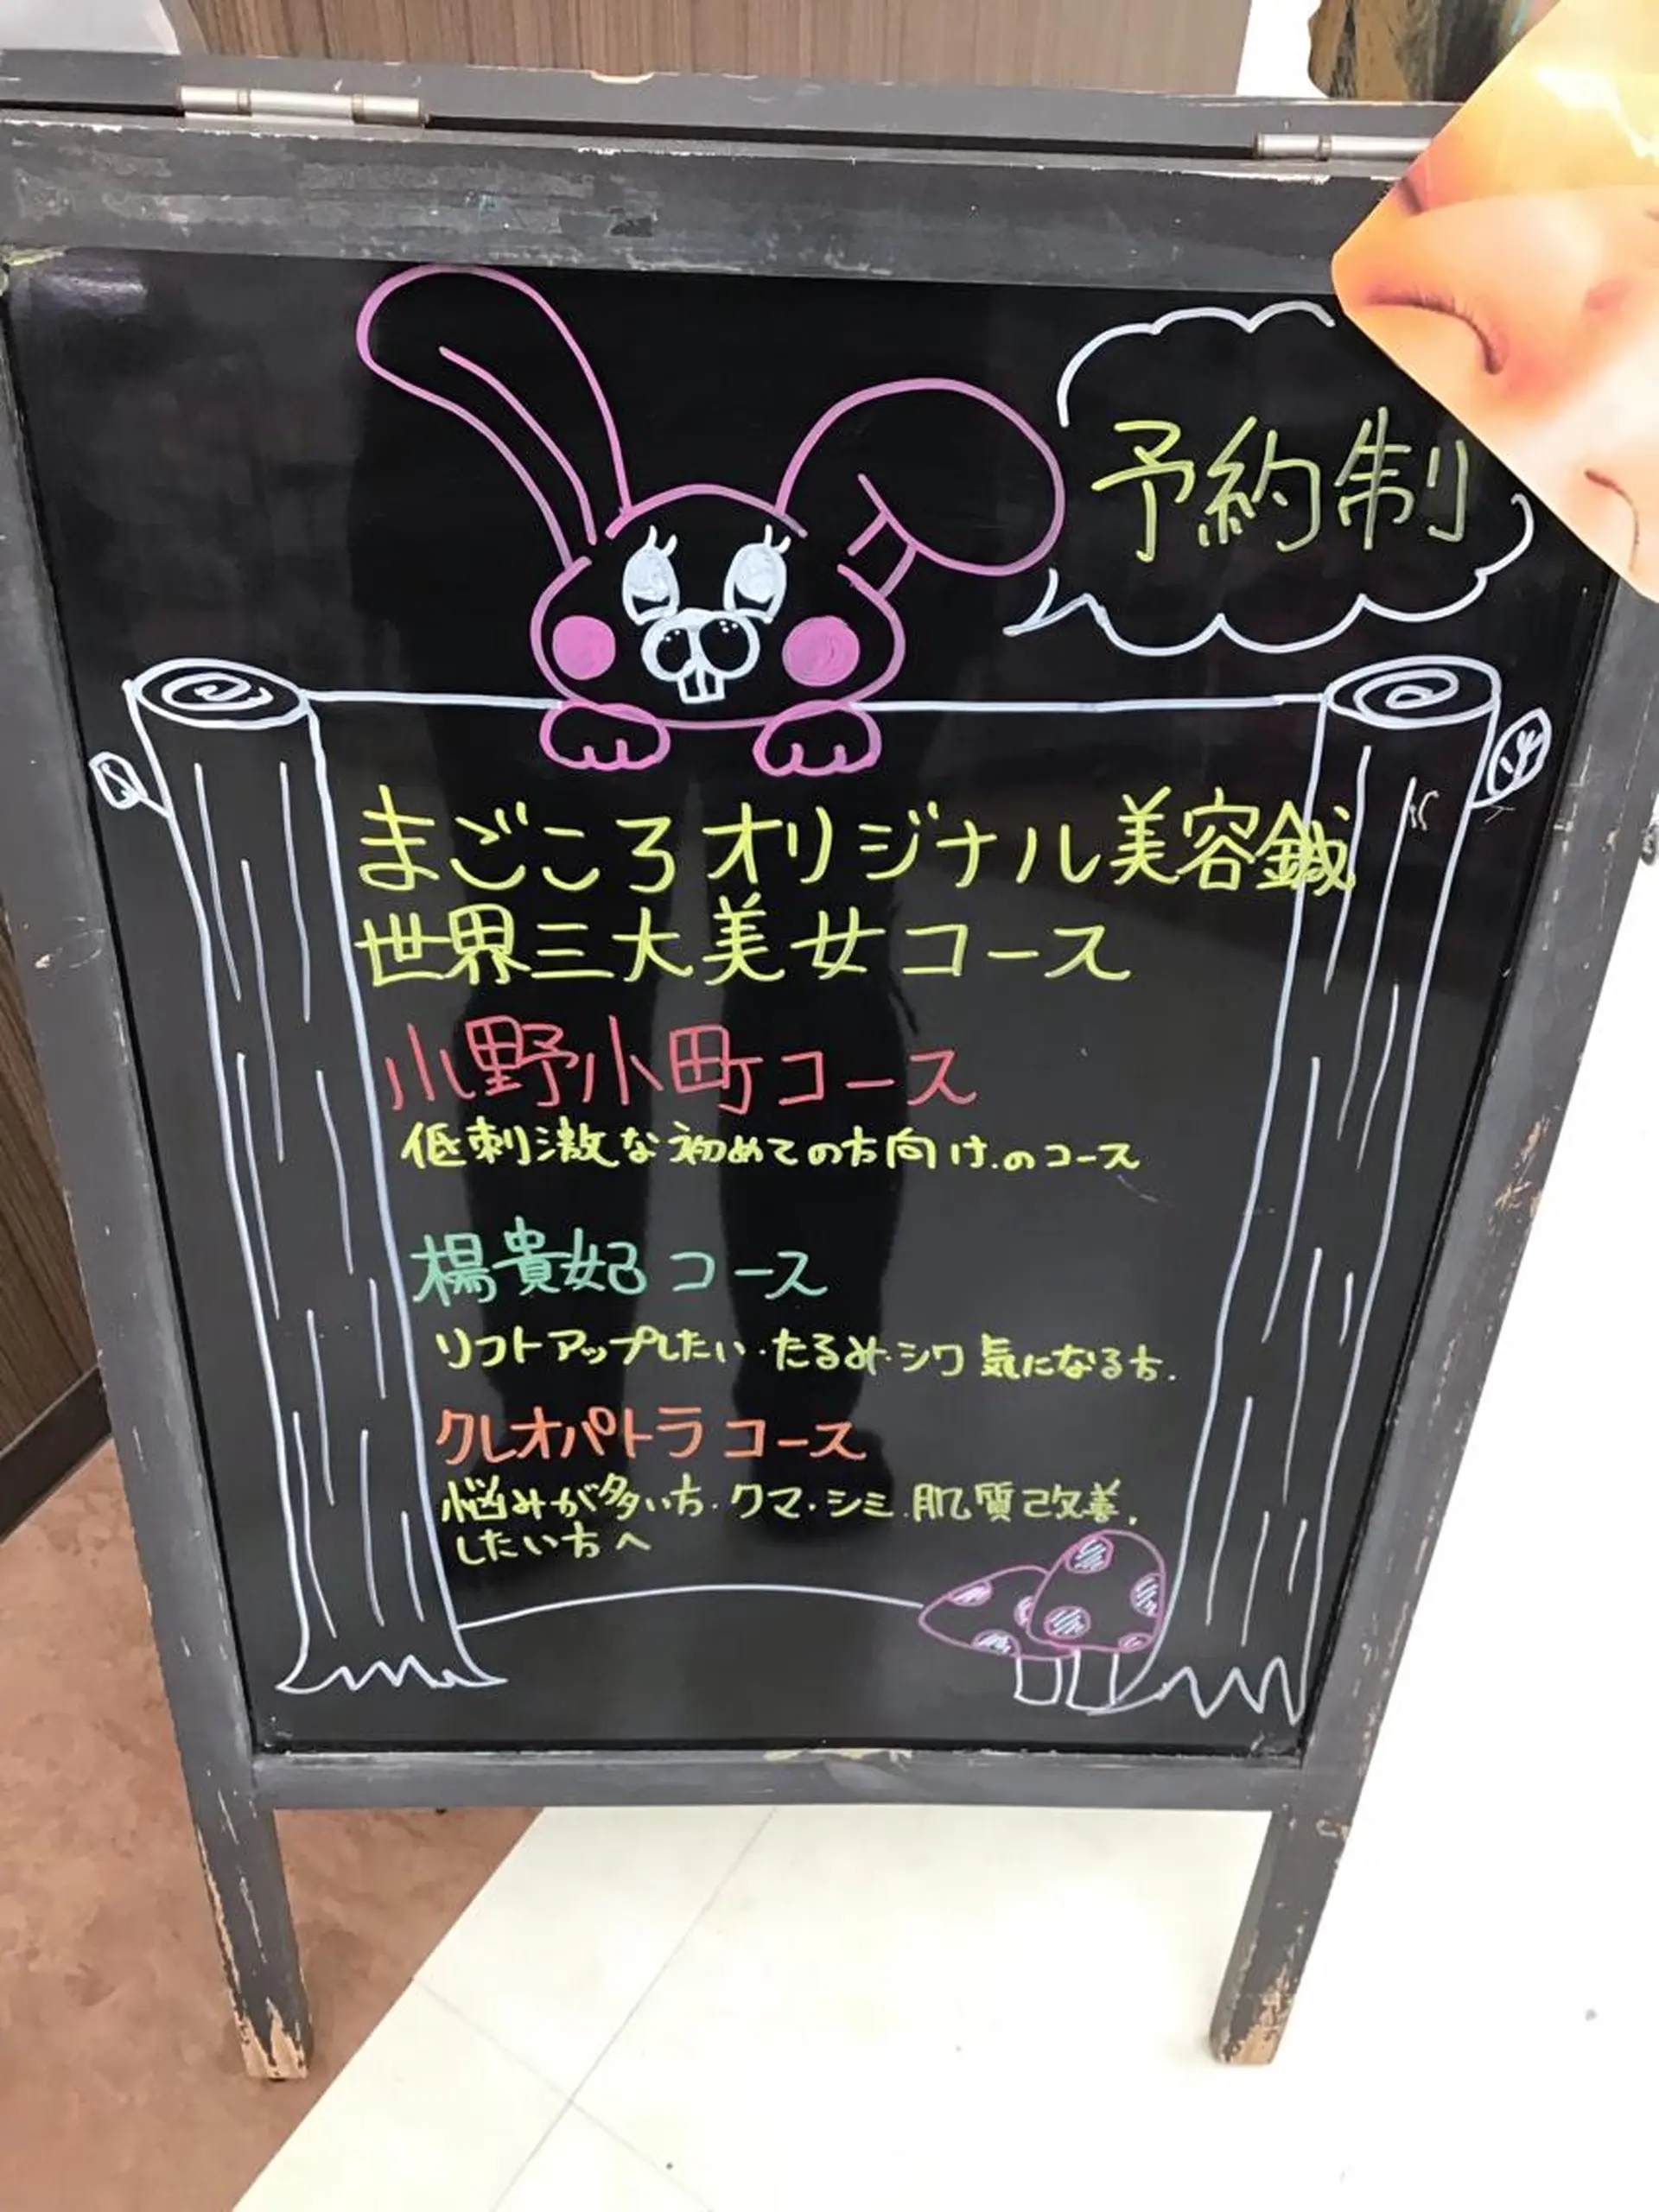 予約制
まごころオリジナル美容鍼
世界三大美女コース
小野小町コース
低刺激な初めての方向け.のコース
楊貴妃コース
リフトアップしたい・たるみ・シワ気になる方.
クレオパトラコース
悩みが多い方・クマ・シミ.肌質改善.
したい方へ